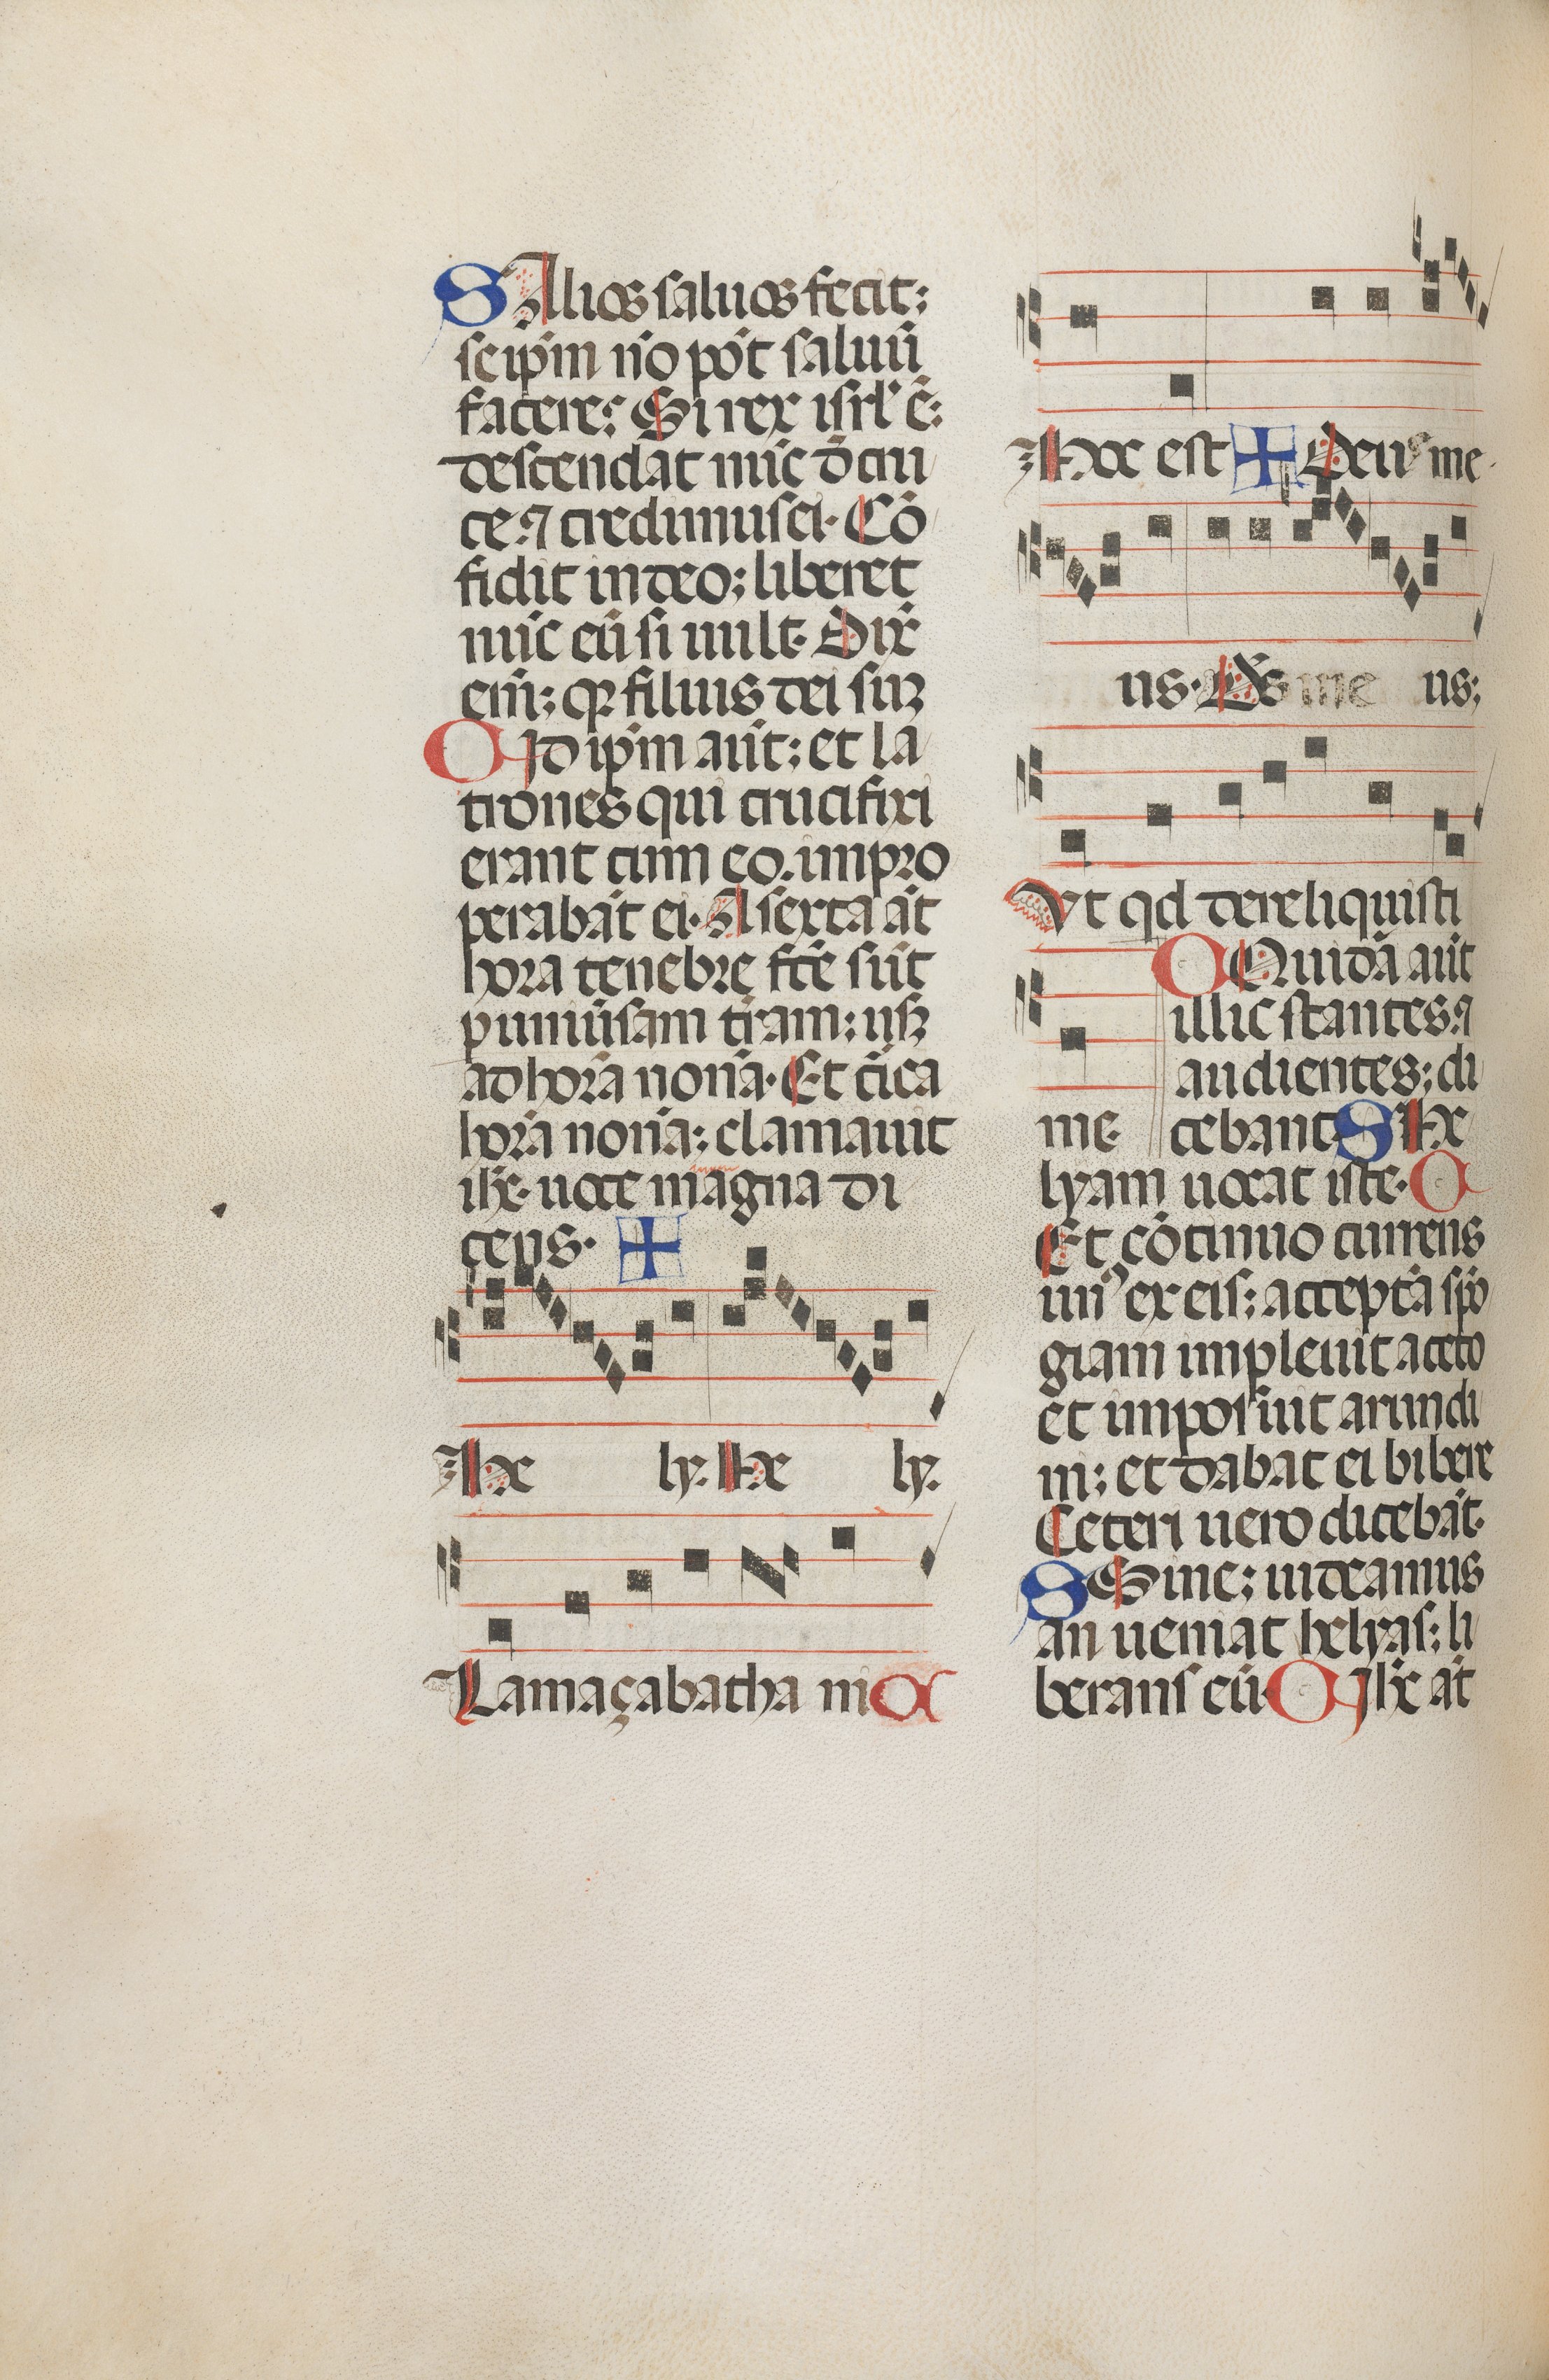 S Alios saluos fecit;
seip̄m nō pōt saluū
facere? Si rex isrl' ē:
descendat nūc d̄ cru
ce: ⁊ credimus ei. Cō
fidit in deo; liberet
nūc eū si uult. Dix̄
em̄; qꝛ filius dei suꝫ
C Idip̄m aūt; et la
trones qui crucifixi
erant cum eo. impro
perabāt ei. A sexta āt
hora tenebre fc̄e sūt
sup uniūsam trām; usꝫ
ad horā nonā. Et c̄ica
horā nonā; clamauit
ih̄c. uoce magna di
cens. +
He ly. He ly.
Lamaçabatha ni C
Hoc est + Deus me
us. Ds̄ me us;
Vt qd dereliquisti
me.
C Quidā aūt
illic stantes. ⁊
audientes; di
cebant S He
lyam uocat iste. C
Et cōtinuo currens
unꝰ ex eis; acceptā spō
giam impleuit aceto
et imposuit arundi
ni; et dabat ei bibere
Ceteri uero dicebāt.
S Sine; uideamus
an ueniat helyas; li
berans eū. C Ih̄c āt